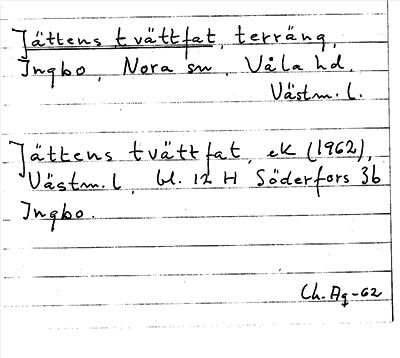 Jättens tvättfat, terräng,
Ingbo, Nora sn, Våla hd.
Västm. l.
Jättens tvättfat, ek (1962),
Västm. l, bl. 12 H Söderfors 3b
Ingbo.
Ch. Ag -62